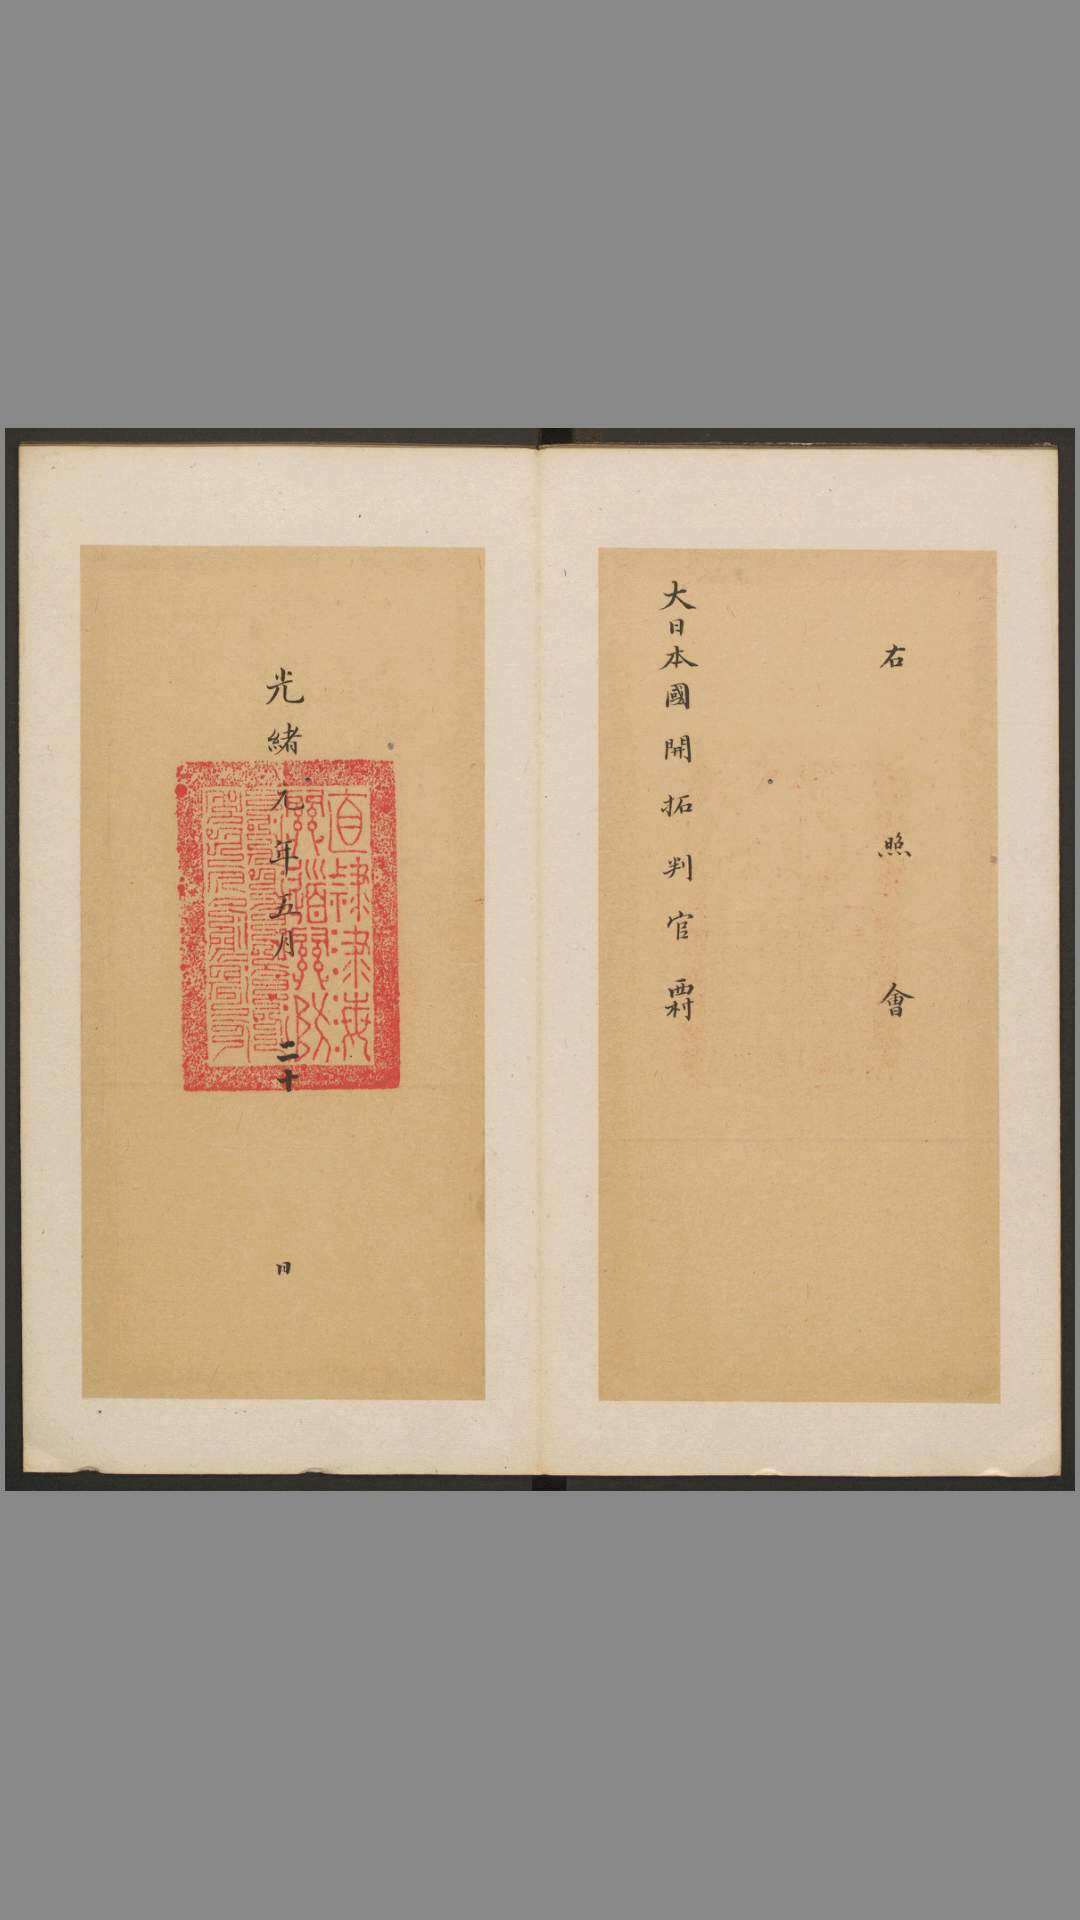 右照會
大日本國開拓判官西村
光緒元年五月二十日
直隸津海
關道關防